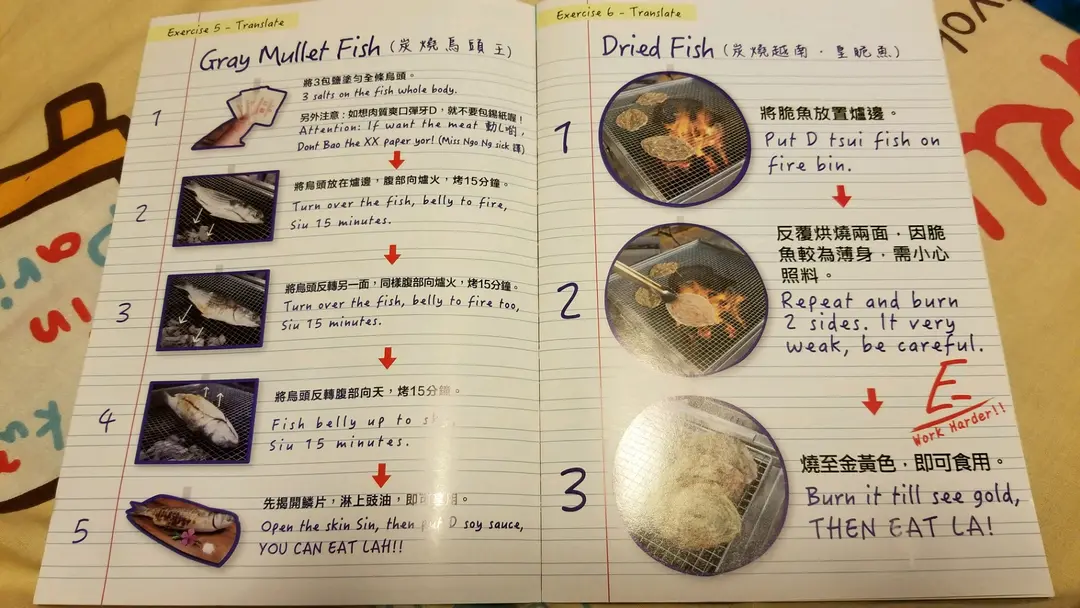 Exercise 5 - Translate
Gray Mullet Fish (炭燒烏頭王)
1
將3包鹽塗勻全條烏頭。
3 salts on the fish whole body.
另外注意：如想肉質爽口彈牙D，就不要包錫紙喔！
Attention: If want the meat 動L啲,
Dont Bao the XX paper yor! (Miss Ngo Ng sick 譯)
2
將烏頭放在爐邊，腹部向爐火，烤15分鐘。
Turn over the fish, belly to fire,
Siu 15 minutes.
3
將烏頭反轉另一面，同樣腹部向爐火，烤15分鐘。
Turn over the fish, belly to fire too,
Siu 15 minutes.
4
將烏頭反轉腹部向天，烤15分鐘。
Fish belly up to sky,
Siu 15 minutes.
5
先揭開鱗片，淋上豉油，即可食用。
Open the skin Sin, then put D soy sauce,
YOU CAN EAT LAH!!
Exercise 6 - Translate
Dried Fish (炭燒越南．皇脆魚)
1
將脆魚放置爐邊。
Put D tsui fish on
fire bin.
2
反覆烘燒兩面．因脆
魚較為薄身．需小心
照料。
Repeat and burn
2 sides. It very
weak, be careful.
E-
Work Harder!!
3
燒至金黃色．即可食用。
Burn it till see gold,
THEN EAT LA!